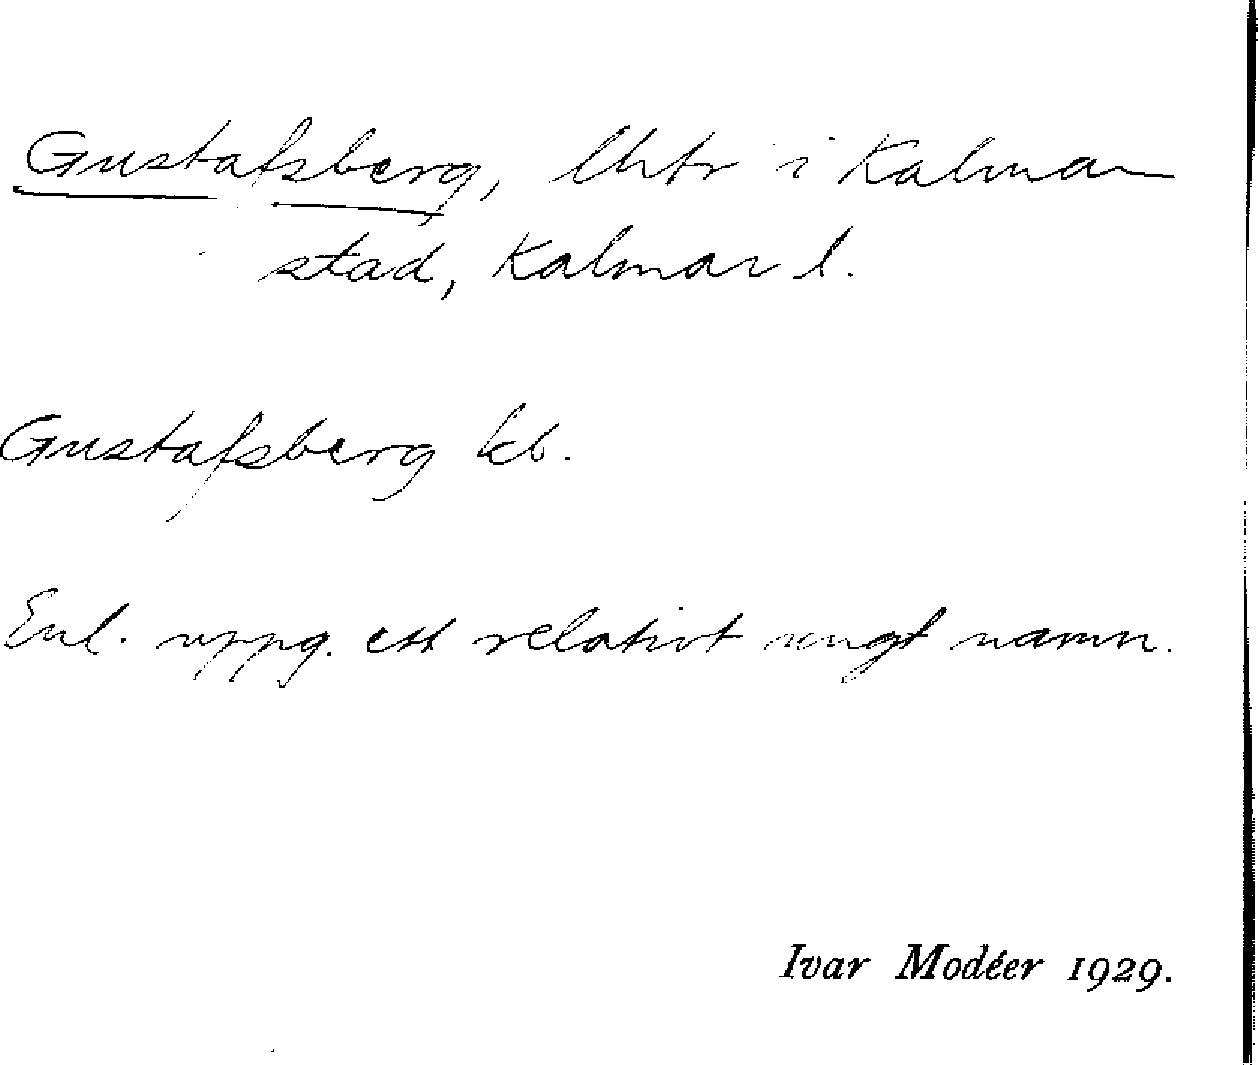 Gustafsberg, lhtr i Kalmar
stad, Kalmar l.
Gustafsberg kb.
Enl. uppg. ett relativt ungt namn.
Ivar Modéer 1929.